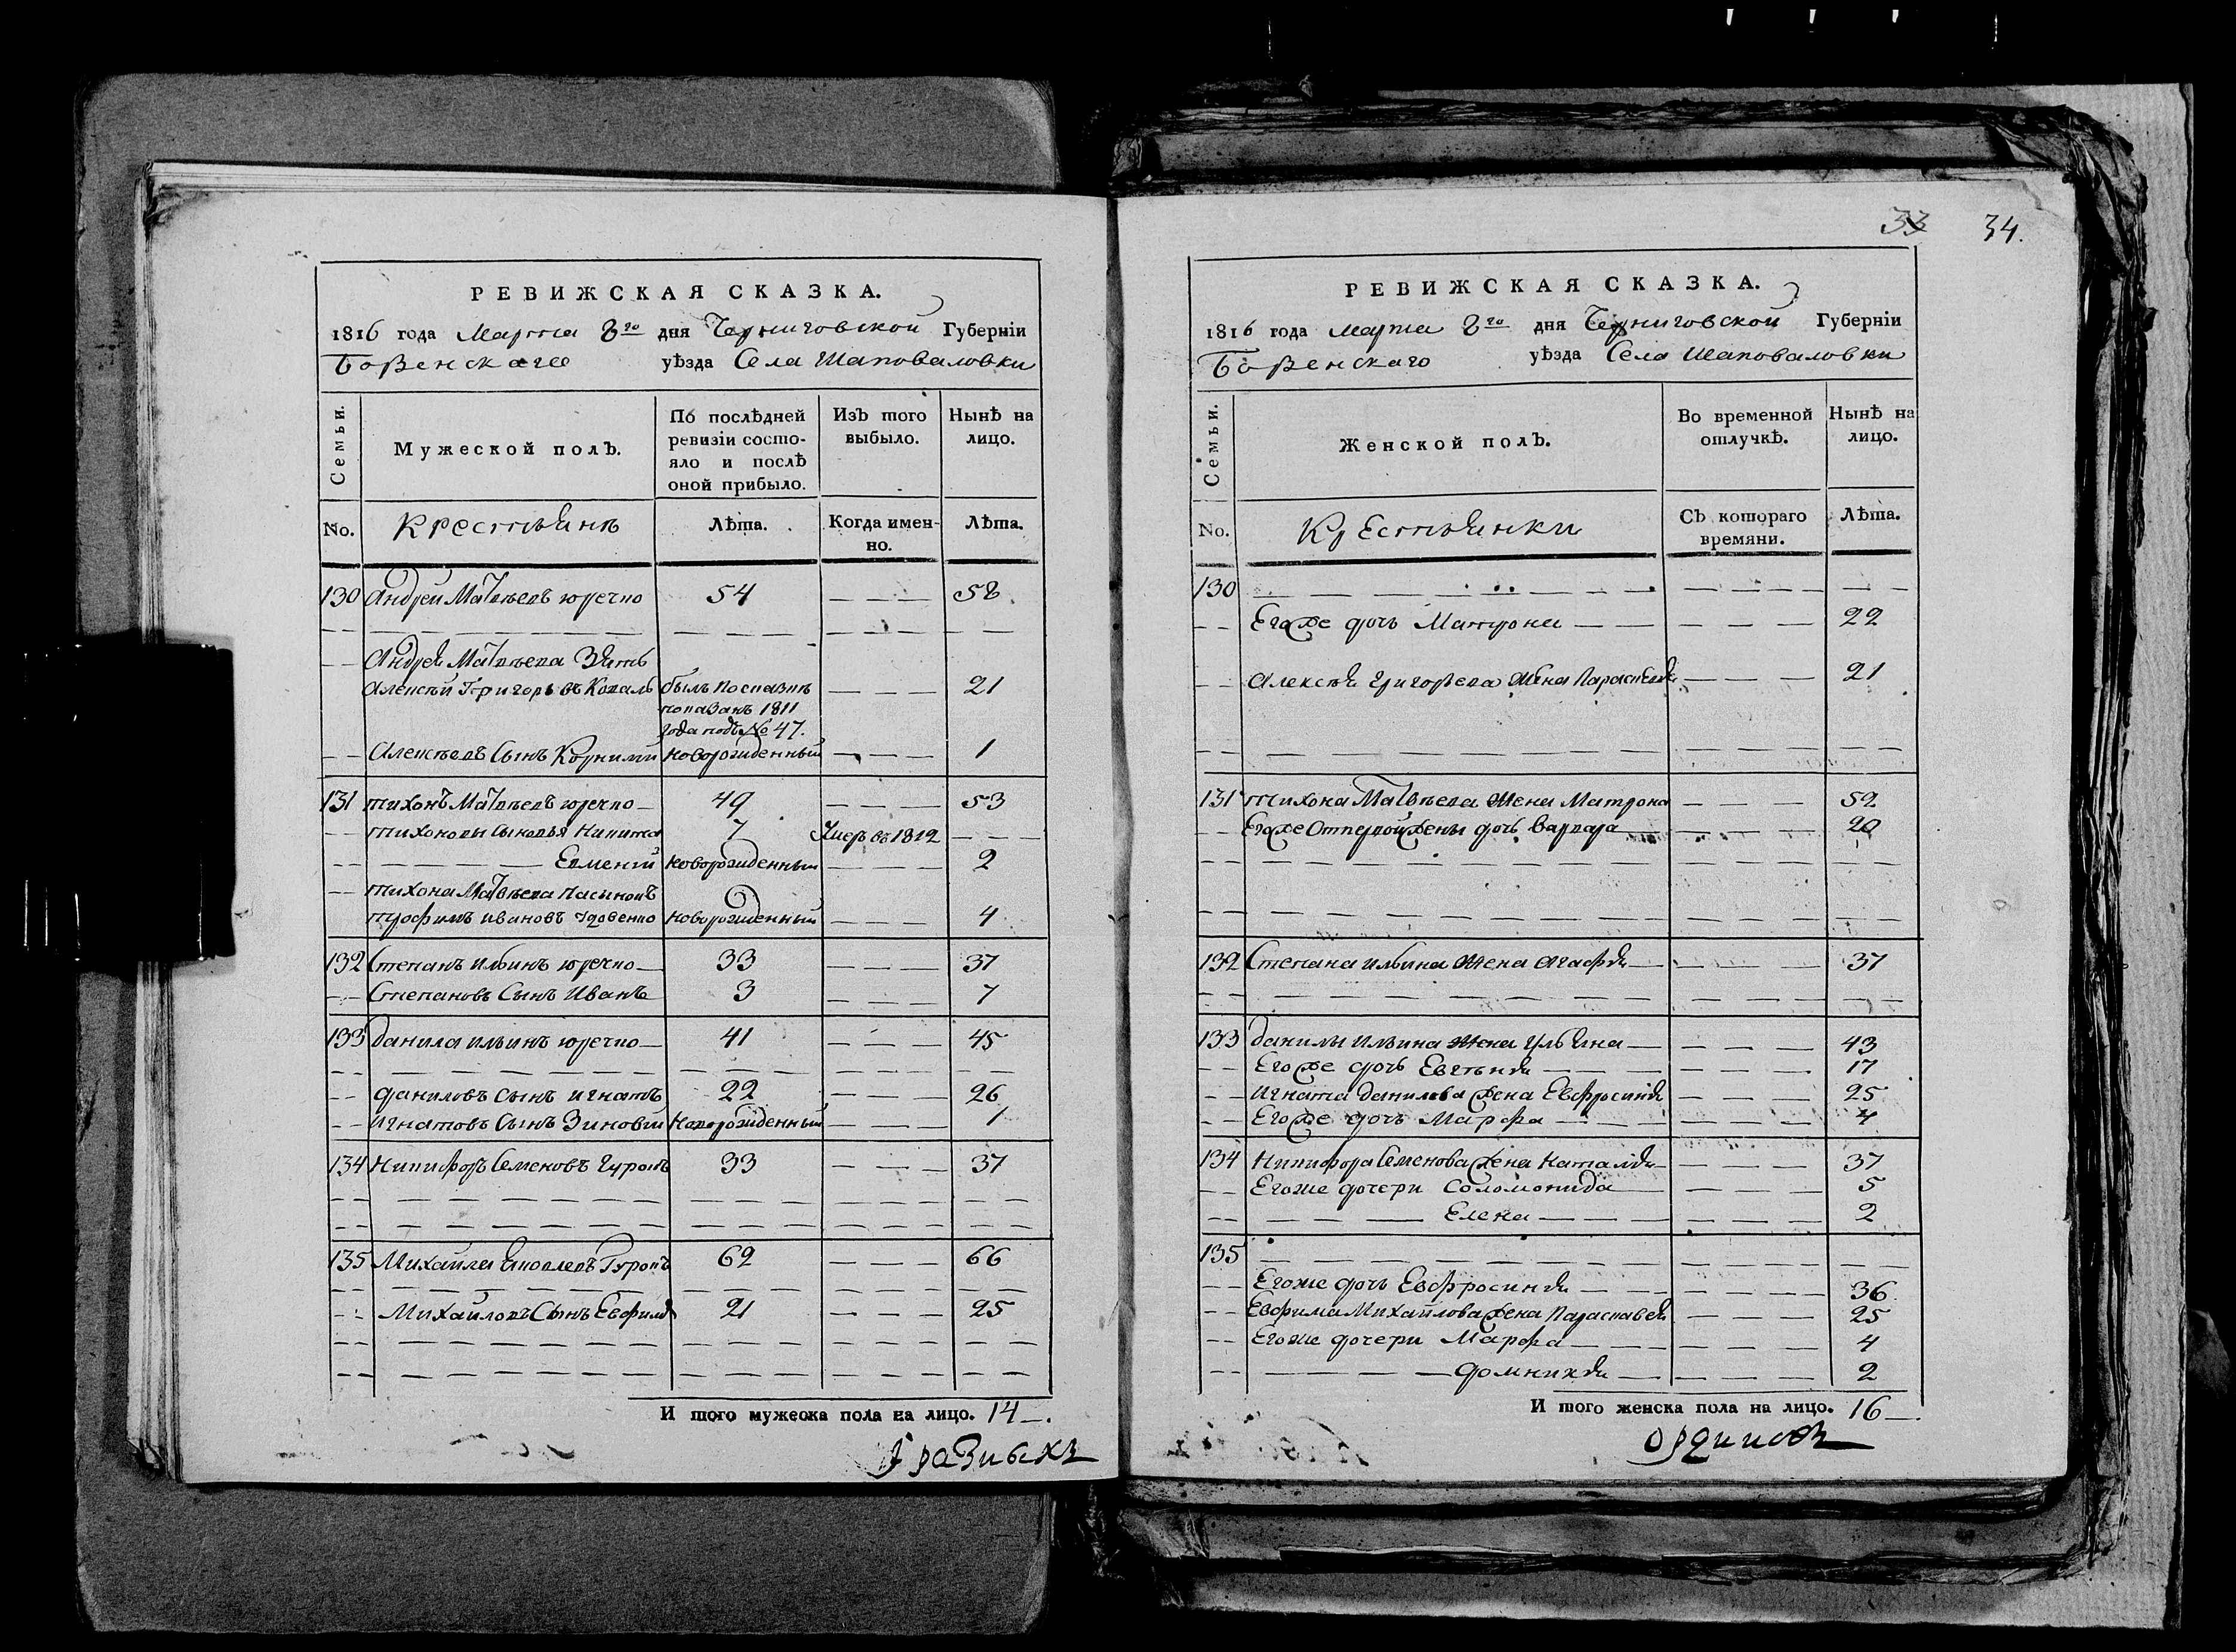 РЕВИЖСКАЯ СКАЗКА.
1816 года Марта 8го дня Черниговской Губерніи
Борзенскаго уѣзда Села Шаповаловки
Семьи.
Мужеской полЪ.
По послѣдней ревизіи состо-
яло и послѣ
оной прибыло.
ИзЪ того выбыло.
Нынѣ на лицо.
No. Крестьянъ Лѣта. Когда имен-
но. Лѣта.
130 Андрей Матвѣевъ юречко 54 — — — 58
Андрея Матвѣева Зять
Алексѣй Григорьевъ Коваль былъ По сказкѣ — — — 21
показанъ 1811
года подъ № 47.
Алексѣевъ Сынъ Корнилий новорожденный — — — 1
131 тихонъ Матвѣевъ юречко — 49 — — — 53
тихоновы сыновья Никита 7 Умеръ въ 1812 — — —
Евмений новорожденный — — — 2
тихона Матвѣева пасынокъ
трофимъ ивановъ новорожденный — — — 4
132 Степанъ ильинъ юречко — 33 — — — 37
Степановъ Сынъ Иванъ 3 — — — 7
133 данила ильинъ юречко — 41 — — — 45
даниловъ сынъ игнатъ 22 — — — 26
игнатовъ Сынъ Зиновий Новорожденный — — — 1
134 Никифоръ Семеновъ Гурокъ 33 — — — 37
135 Михайла Яковлевъ Гурокъ 62 — — — 66
Михайловъ Сынъ Евфимъ 21 — — — 25
И того мужеска пола на лицо. 14 —.
33 34.
РЕВИЖСКАЯ СКАЗКА.
1816 года марта 8го дня Черниговской Губерніи
Борзенскаго уѣзда Села Шаповаловки
Семьи.
Женской полЪ.
Во временной
отлучкѣ.
Нынѣ на
лицо.
No. Крестьянки СЪ котораго
времяни. Лѣта.
130 — — —
Егоже дочь Матрона — — — — — 22
Алексѣя григорьева жена Параскевія — — — 21
131 тихона Матвѣева жена Матрона — — — 52
Егоже От первой жены дочь варвара — — — 20
132 Степана ильина жена агафія — — — — 37
133 данилы ильина жена Ульяна — — — — 43
Егоже дочь Евгенія — — — 17
игната данилова жена Евфросинія — — — 25
Егоже дочь Марфа — — — 4
134 Никифора Семенова жена Наталія — — — — 37
Егоже дочери Соломонида — — — 5
Елена — — — 2
135 — — —
Егоже дочь Евфросинія — — — 36
Евфима Михайлова жена Параскавея — — — 25
Егоже дочери Марфа — — — 4
домникія — — — 2
И того женска пола на лицо. 16 —.